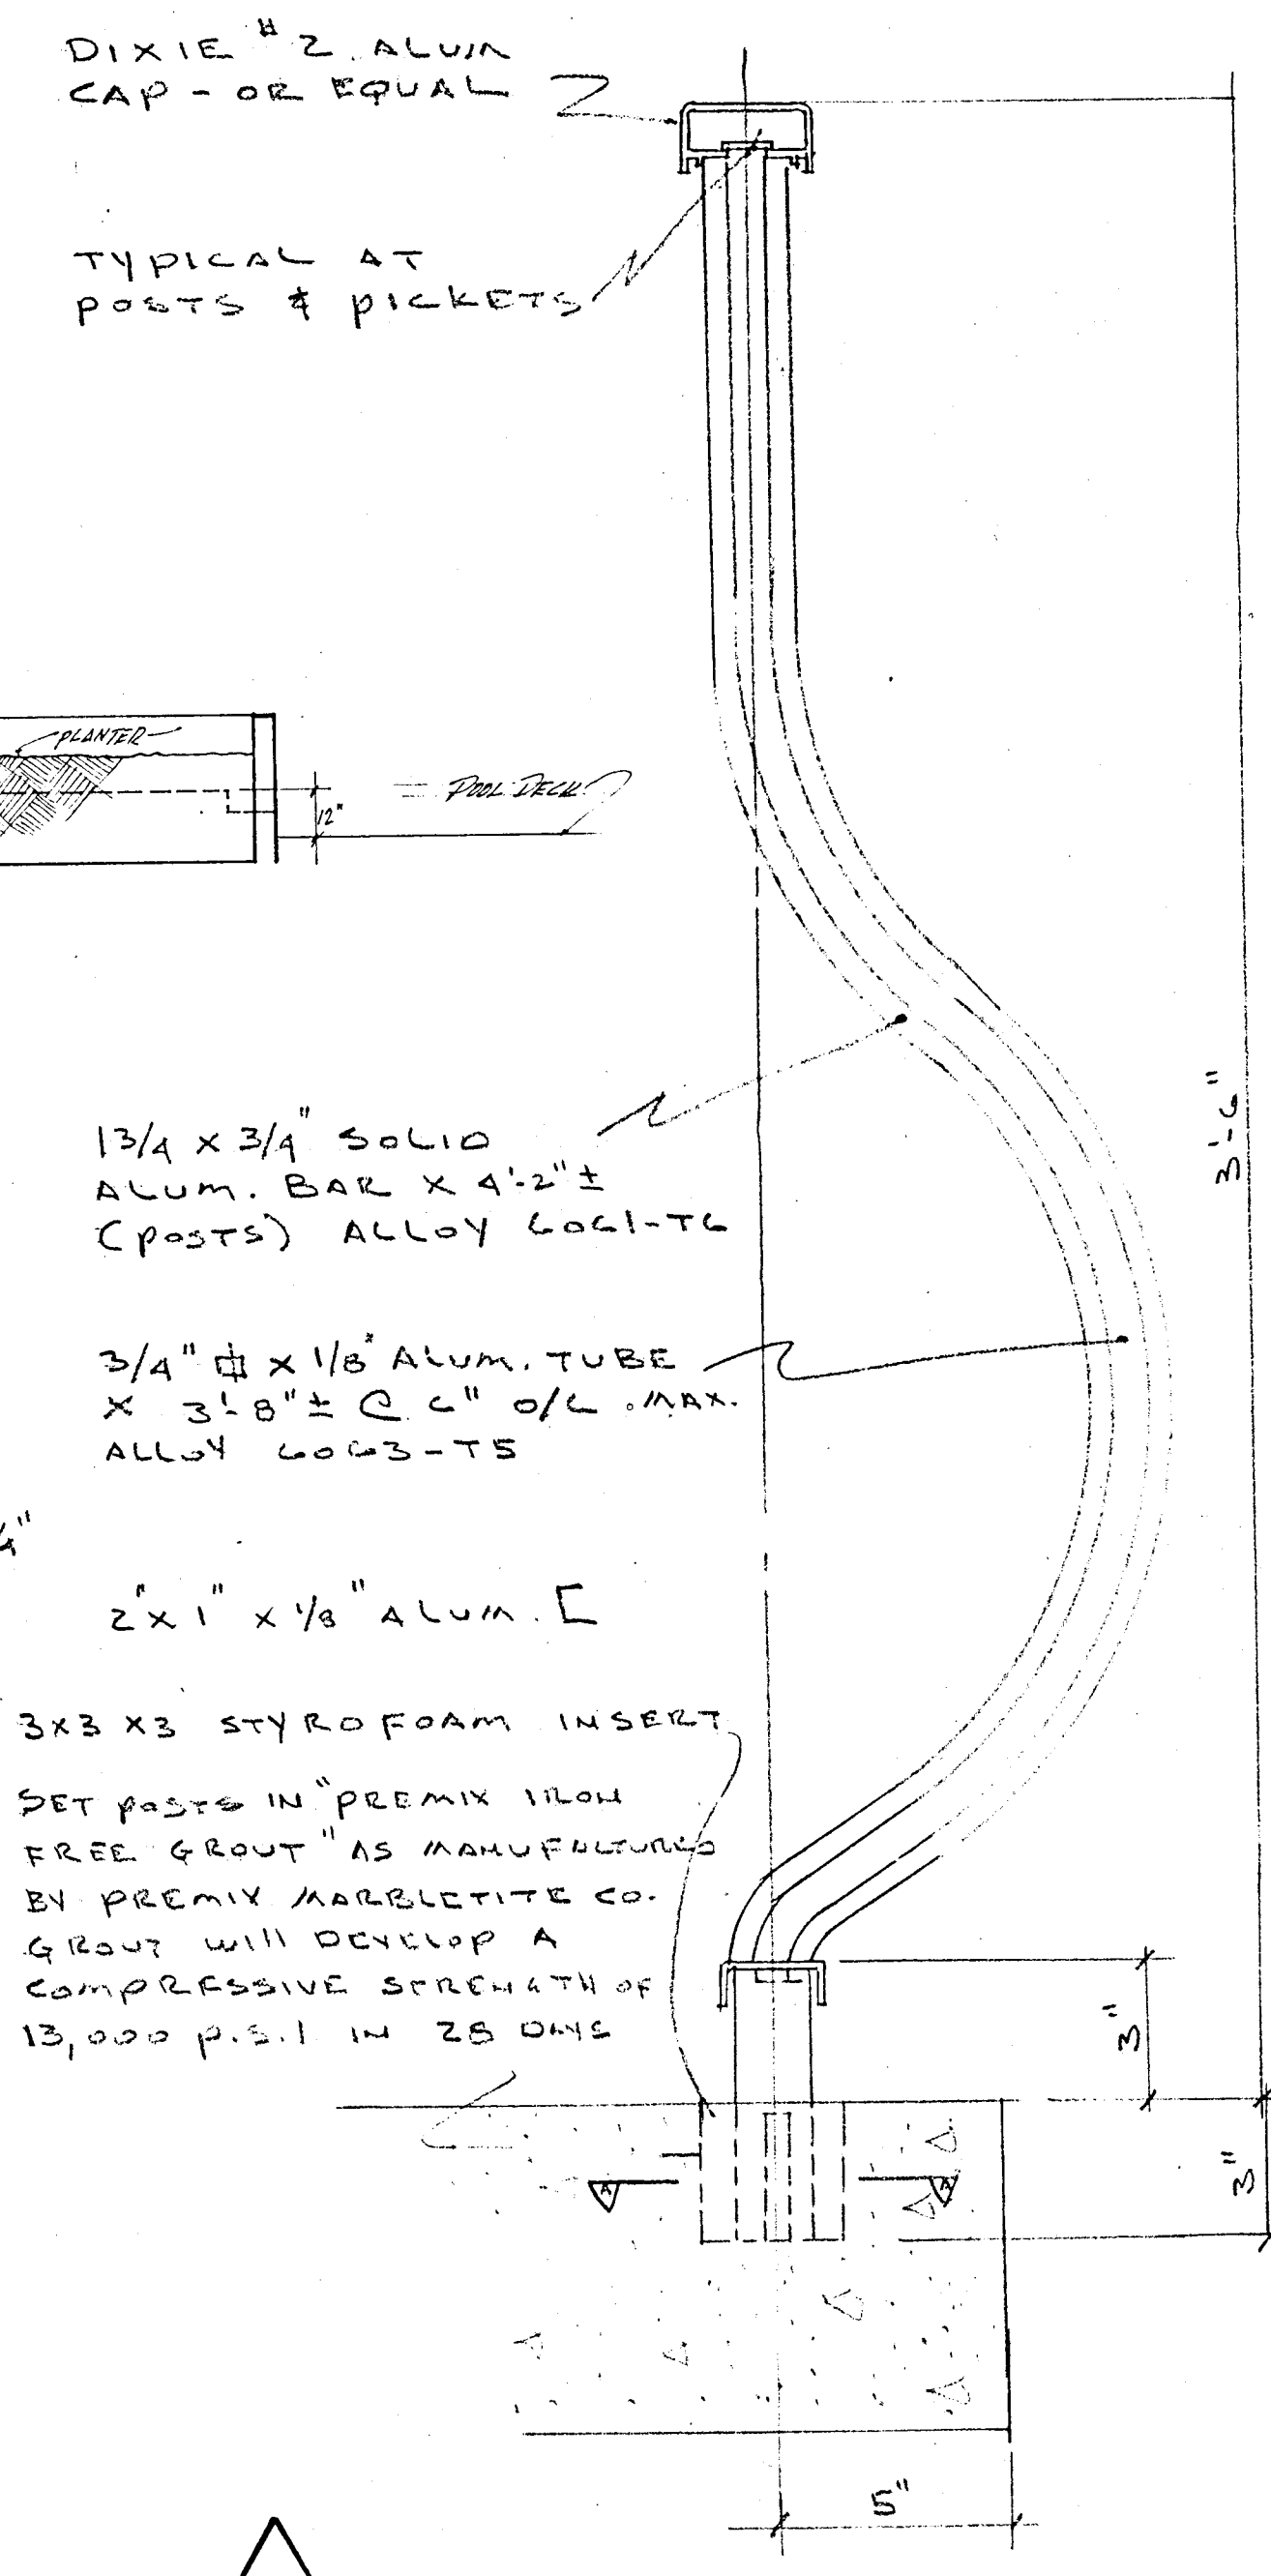 DIXIE #2 ALUM
CAP - OR EQUAL
TYPICAL AT
POSTS & PICKETS
PLANTER
POOL DECK
12"
1 3/4 X 3/4" SOLID
ALUM. BAR X 4'-2" ±
(POSTS) ALLOY 6061-T6
3/4" ⌷ X 1/8" ALUM. TUBE
X 3'-8" ± @ 6" O/C MAX.
ALLOY 6063-T5
3'-6"
2" X 1" X 1/8" ALUM. [
3X3X3 STYROFOAM INSERT
SET POSTS IN "PREMIX IRON
FREE GROUT" AS MANUFACTURED
BY PREMIX MARBLETITE CO.
GROUT WILL DEVELOP A
COMPRESSIVE STRENGTH OF
13,000 P.S.I IN 28 DAYS
3"
3"
A A
5"